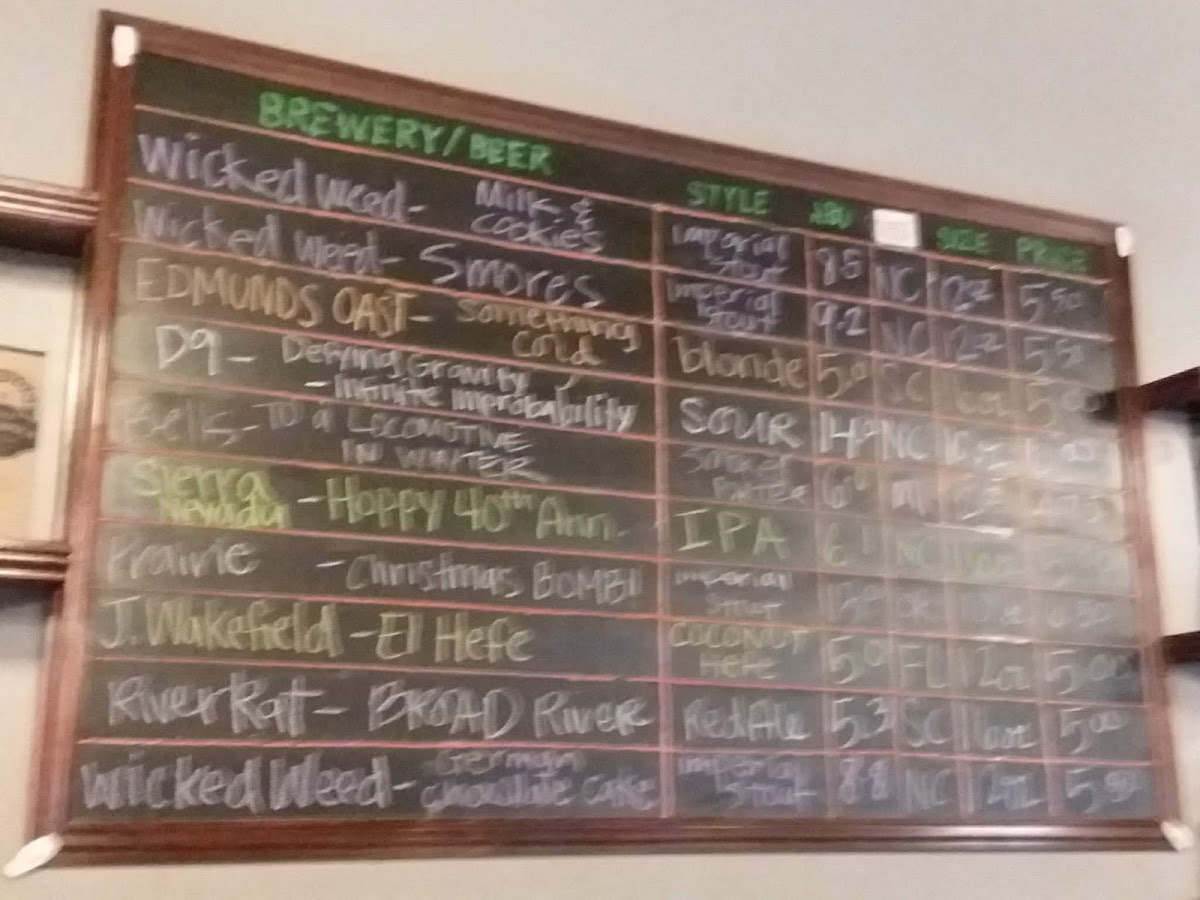 BREWERY/BEER STYLE SIZE PRICE
Wicked Weed- Milk & cookies Imperial Stout 8.5 NC 12oz 5.50
Wicked Weed- Smores Imperial Stout 9.2 NC 12oz 5.50
EDMUNDS OAST- Something Cold blonde 5.0 SC 16oz 5.00
D9- Defying Gravity - Infinite Improbability SOUR 14.0 NC
Bells- TO a LOCOMOTIVE IN WINTER
Sierra Nevada -Hoppy 40th Ann. IPA 6.1 NC 16oz
Prairie -Christmas BOMB! imperial Stout
J. Wakefield -El Hefe COCONUT HEFE 5.0 FL 12oz 5.00
River Rat- BROAD RIVER Red Ale 5.3 SC 16oz 5.00
Wicked Weed- German chocolate cake Imperial Stout 8.8 NC 12oz 5.50